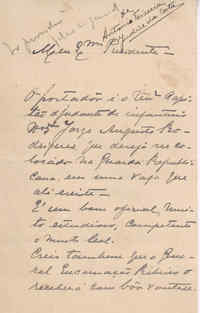 de
Meu Exmo Presidente
O portador é o Tene
ajudante de infantaria
Jorge Augusto Ro-
drigues, que deseja ser co-
locado na Guarda Republi-
cana, em uma vaga que
ali existe.
É um bom oficial, mui-
to estudioso, competente
e muito leal.
Creio tambem que o Gene-
ral Encarnação Ribeiro o
receberá com bôa vontade.